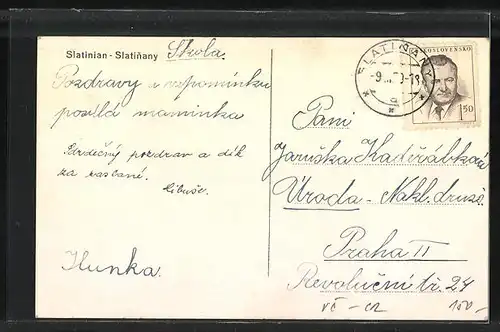 Slatinian - Slatiňany Škola.
Pozdravy a vzpomínku
posílá maminka
Srdečný pozdrav a dík
za zaslané.
Libuše.
Hunka.
SLATIŇANY
ČESKOSLOVENSKO
1.50
Paní
Jaruška Kadeřábková
Úroda - Nakl. druž.
Praha II
Revoluční tř. 24
vč - cr 100.-